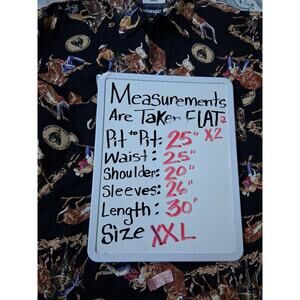 Wrangler
Measurements
Are Taken FLAT
Pit to Pit: 25" X2
Waist: 25"
Shoulder: 20"
Sleeves: 26"
Length: 30"
Size XXL